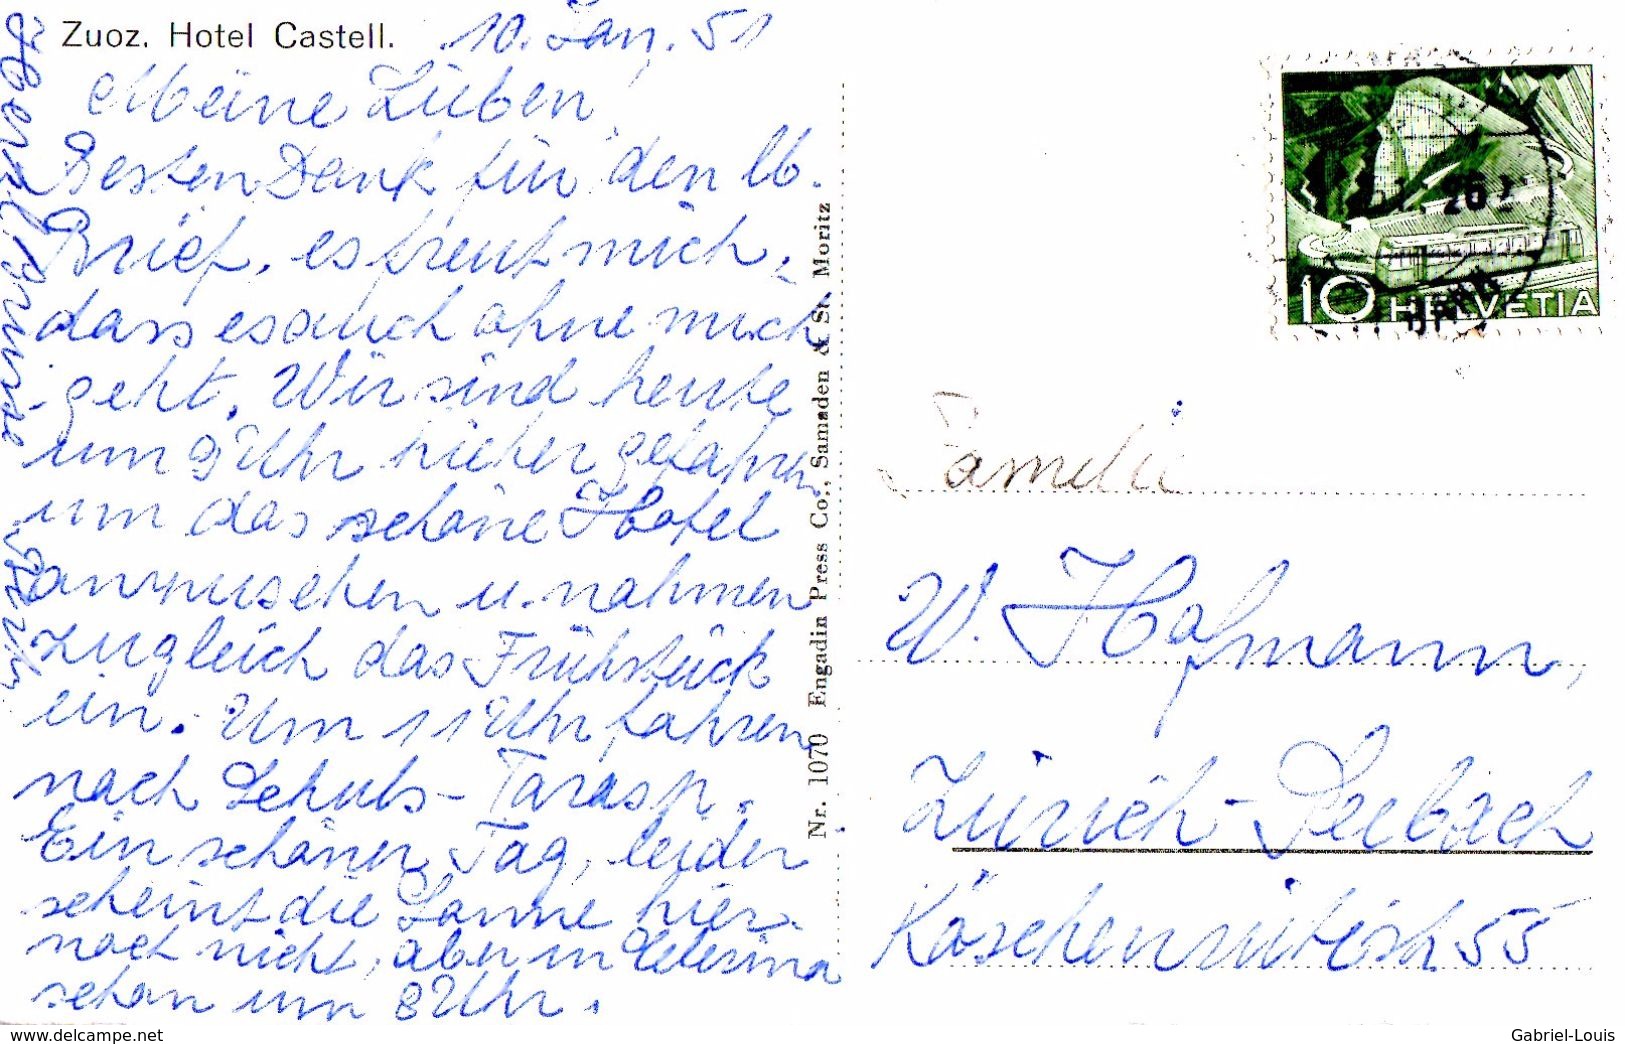 Zuoz. Hotel Castell.
10. Jan. 51
Meine Lieben!
Besten Dank für den lb.
Brief, es freut mich,
dass es auch ohne mich
geht. Wir sind heute
um 9 Uhr hieher gefahren
um das schöne Hotel
anzusehen u. nahmen
zugleich das Frühstück
ein. Um 11 Uhr fahren
nach Schuls-Tarasp.
Ein schöner Tag, leider
scheint die Sonne hier
noch nicht, aber in Celerina
schon um 8 Uhr.
Herzl. Grüsse
Nr. 1070 Engadin Press Co., Samaden & St. Moritz
10 HELVETIA
Familie
W. Hofmann,
Zürich-Seebach
Köschenrütistr. 55
www.delcampe.net
Gabriel-Louis